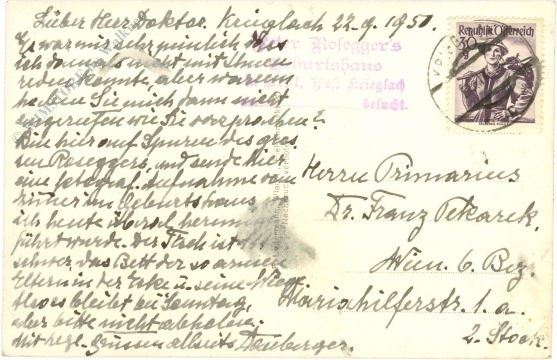 Lieber Herr Doktor. Krieglach 22.9.1951.
Es war mir sehr peinlich daß
ich damals nicht mit Ihnen
reden konnte, aber warum
haben Sie mich dann nicht
angerufen wie Sie vorsprochen?
Bin hier auf Spuren des gros
sen Roseggers, und sende hier
eine fotograf. Aufnahme vom
Zimmer im Geburtshaus wo
ich heute überall herumge
führt wurde. Der Tisch ist
schwer das Bett der so armen
Eltern in der Ecke u. seine Wiege.
Also es bleibt bei Sonntag,
aber bitte nicht abholen.
Mit herzl. Grüssen allseits Dauberger.
Peter Rosegger's
Geburtshaus
Post Krieglach
besucht.
Republik Österreich
30
Herrn Primarius
Dr. Franz Pekarek,
Wien 6. Bez.
Mariahilferstr. 1. a.
2. Stock.